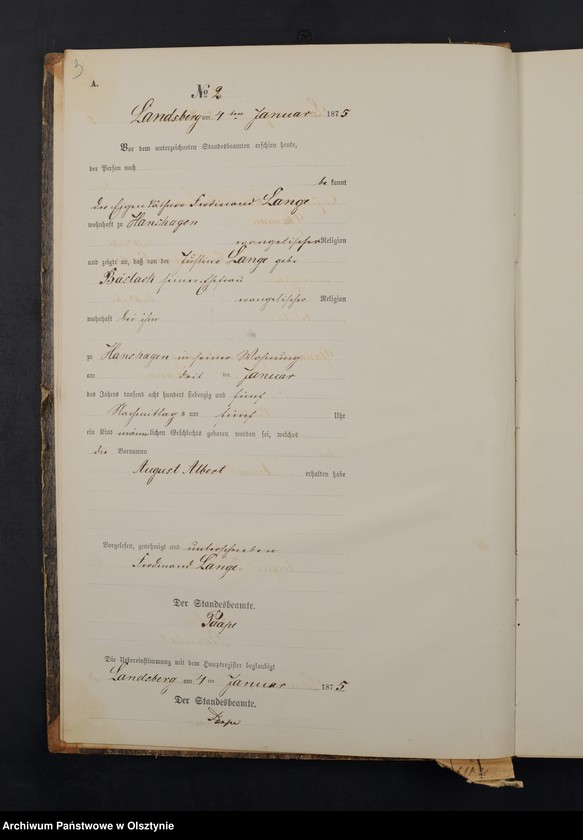 3
A.
No 2
Landsberg am 4ten Januar 1875
Vor dem unterzeichneten Standesbeamten erschien heute,
der Person nach
be kannt
der Eigenkäthner Ferdinand Lange
wohnhaft zu Hanshagen
evangelischer Religion
und zeigte an, daß von der Justine Lange geb.
seiner Ehefrau
evangelischer Religion
wohnhaft bei ihm
zu Hanshagen in seiner Wohnung
am ten Januar
des Jahres tausend acht hundert siebenzig und fünf
Nachmittags um fünf Uhr
ein Kind männlichen Geschlechts geboren worden sei, welches
die Vornamen
August Albert erhalten habe
Vorgelesen, genehmigt und unterschrieben
Ferdinand Lange
Der Standesbeamte.
Die Uebereinstimmung mit dem Hauptregister beglaubigt
Landsberg am 4ten Januar 1875
Der Standesbeamte.
Archiwum Państwowe w Olsztynie